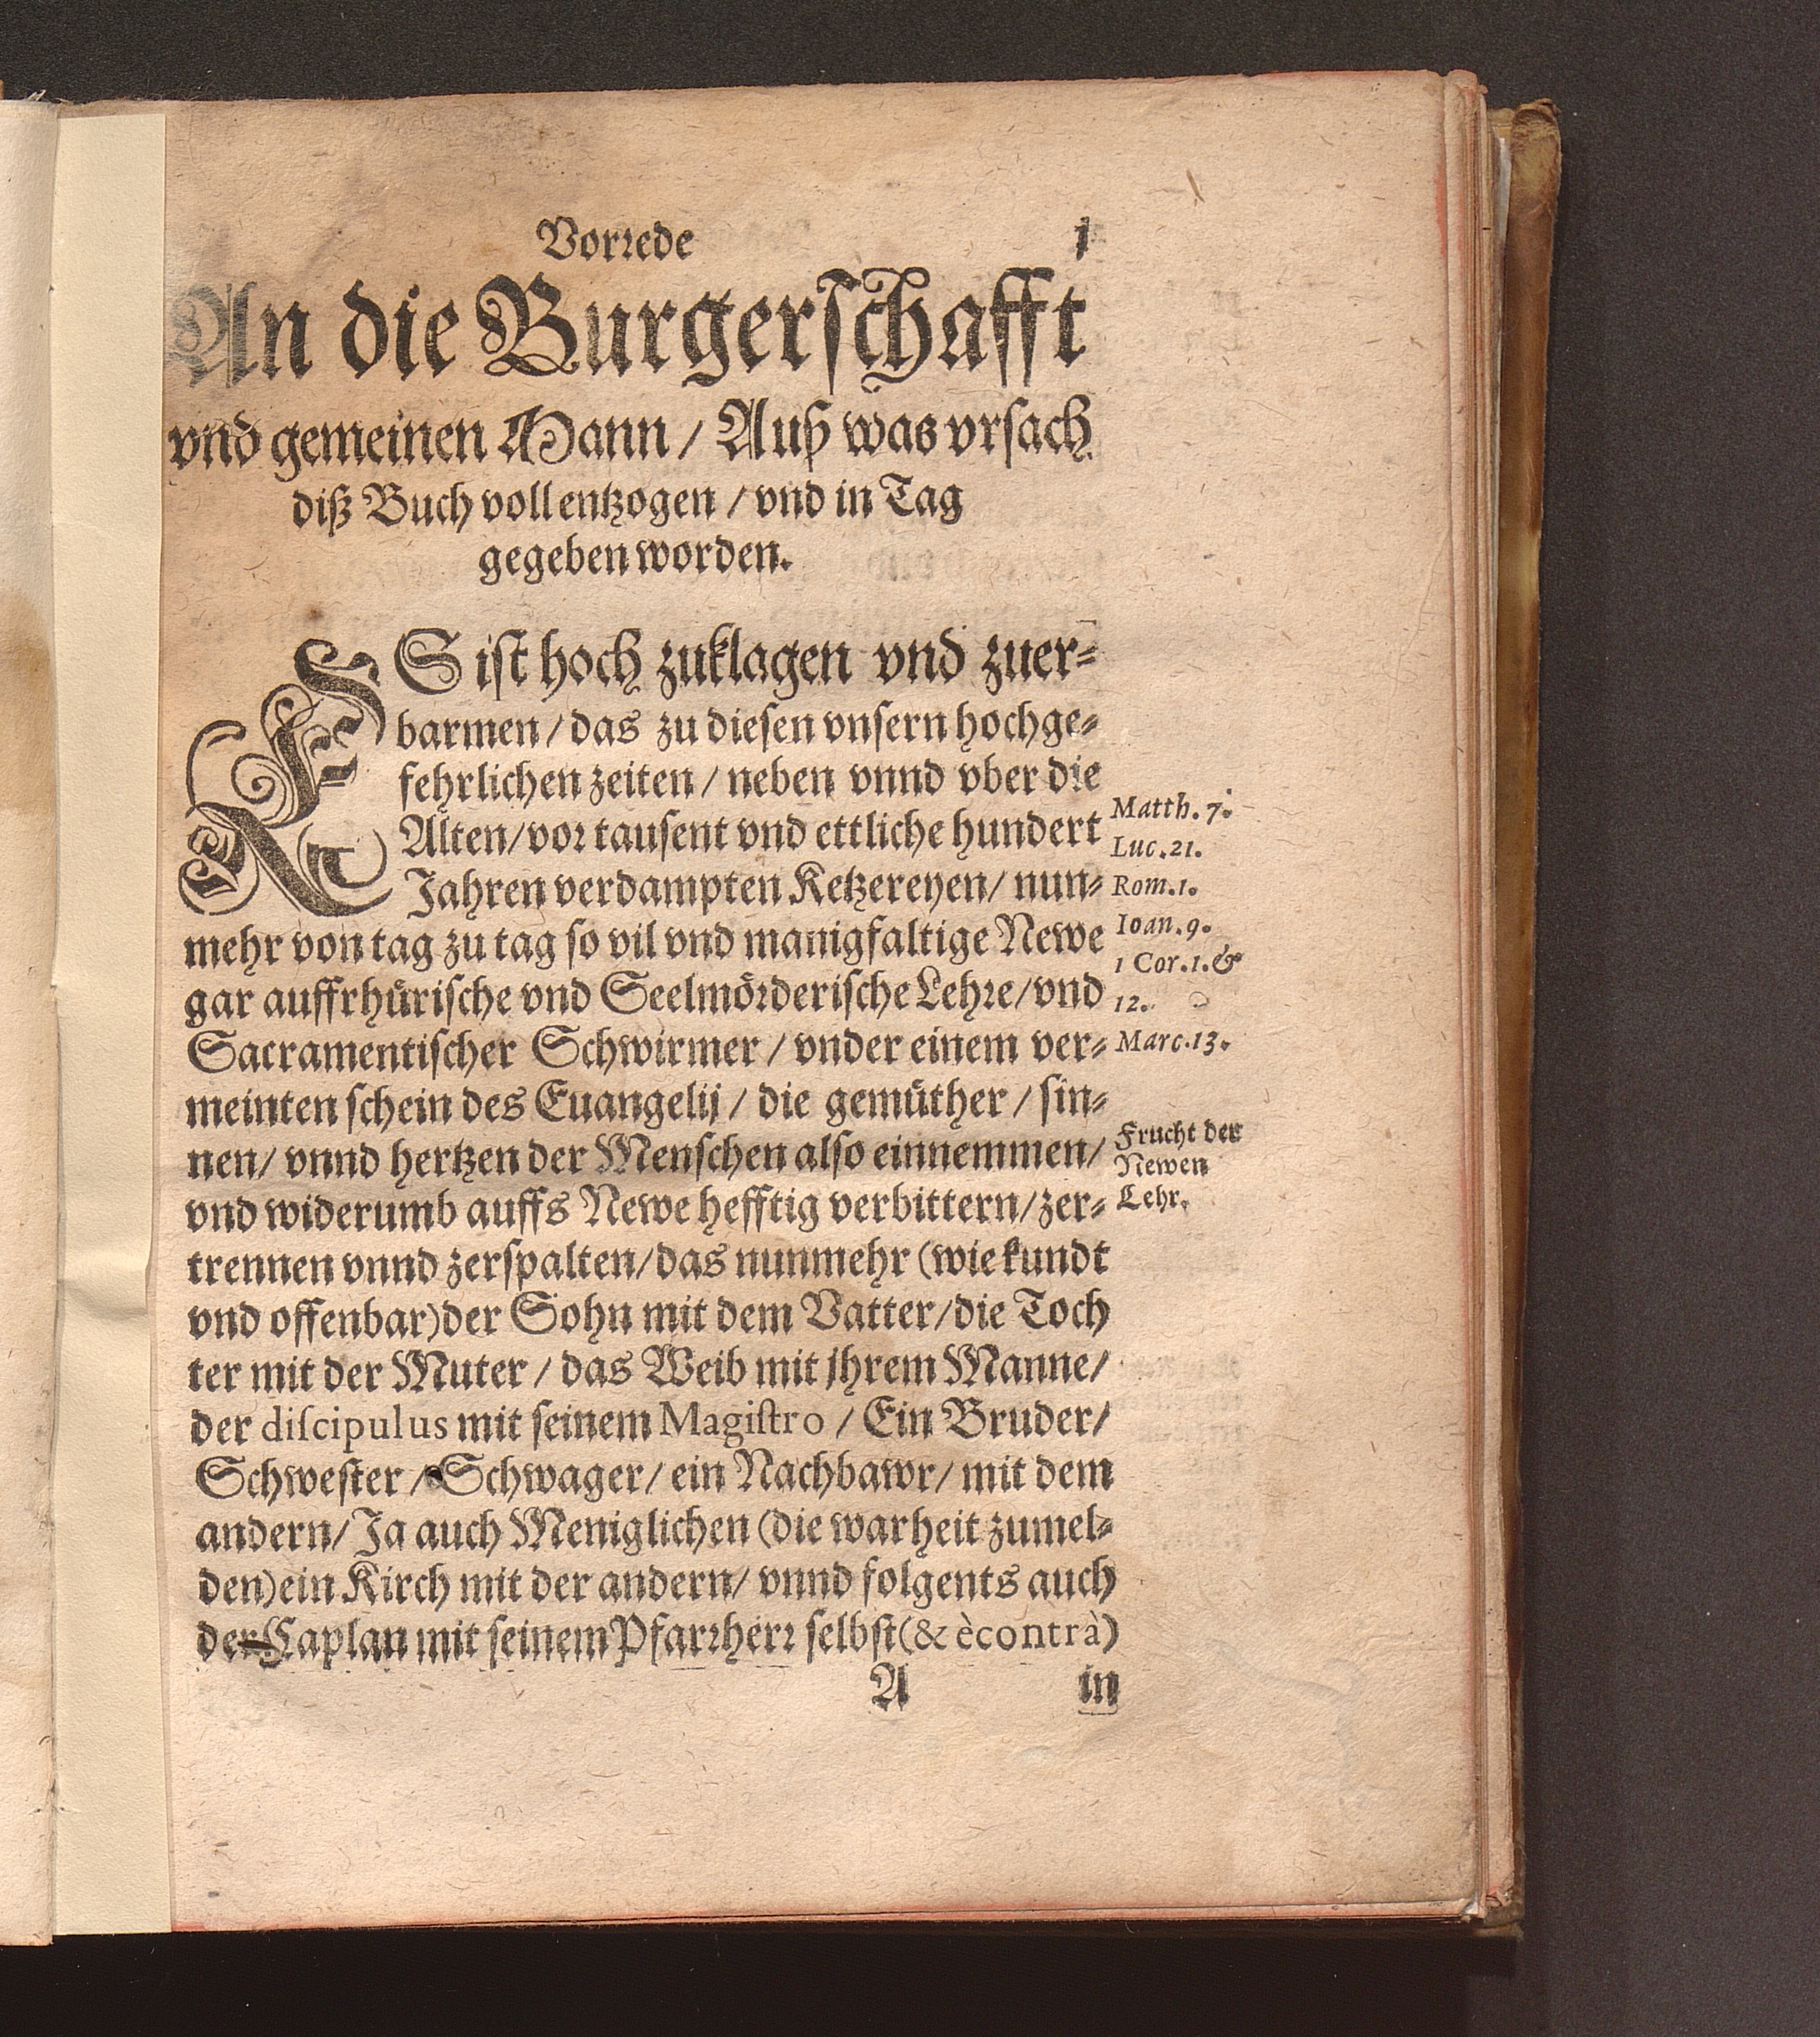 Vorrede 1
An die Burgerſchafft
vnd gemeinen Mann / Auß was vrſach
diß Buch vollentzogen / vnd in Tag
gegeben worden.
ES iſt hoch zuklagen vnd zuer⸗
barmen / das zu dieſen vnſern hochge⸗
fehrlichen zeiten / neben vnnd vber die
Alten / vor tauſent vnd ettliche hundert
Jahren verdampten Ketzereyen / nun⸗
mehr von tag zu tag ſo vil vnd manigfaltige Newe
gar auffrhuͤriſche vnd Seelmoͤrderiſche Lehre / vnd
Sacramentiſcher Schwirmer / vnder einem ver⸗
meinten ſchein des Euangelij / die gemuͤther / ſin⸗
nen / vnnd hertzen der Menſchen alſo einnemmen /
vnd widerumb auffs Newe hefftig verbittern / zer⸗
trennen vnnd zerſpalten / das nunmehr (wie kundt
vnd offenbar) der Sohn mit dem Vatter / die Toch
ter mit der Muter / das Weib mit jhrem Manne /
der diſcipulus mit ſeinem Magiſtro / Ein Bruder /
Schweſter / Schwager / ein Nachbawr / mit dem
andern / Ja auch Meniglichen (die warheit zumel⸗
den) ein Kirch mit der andern / vnnd folgents auch
der Caplan mit ſeinem Pfarrherr ſelbſt (& ècontrà)
A in
Matth. 7.
Luc. 21.
Rom. 1.
Ioan. 9.
1 Cor. 1. &
12.
Marc. 13.
Frucht der
Newen
Lehr.